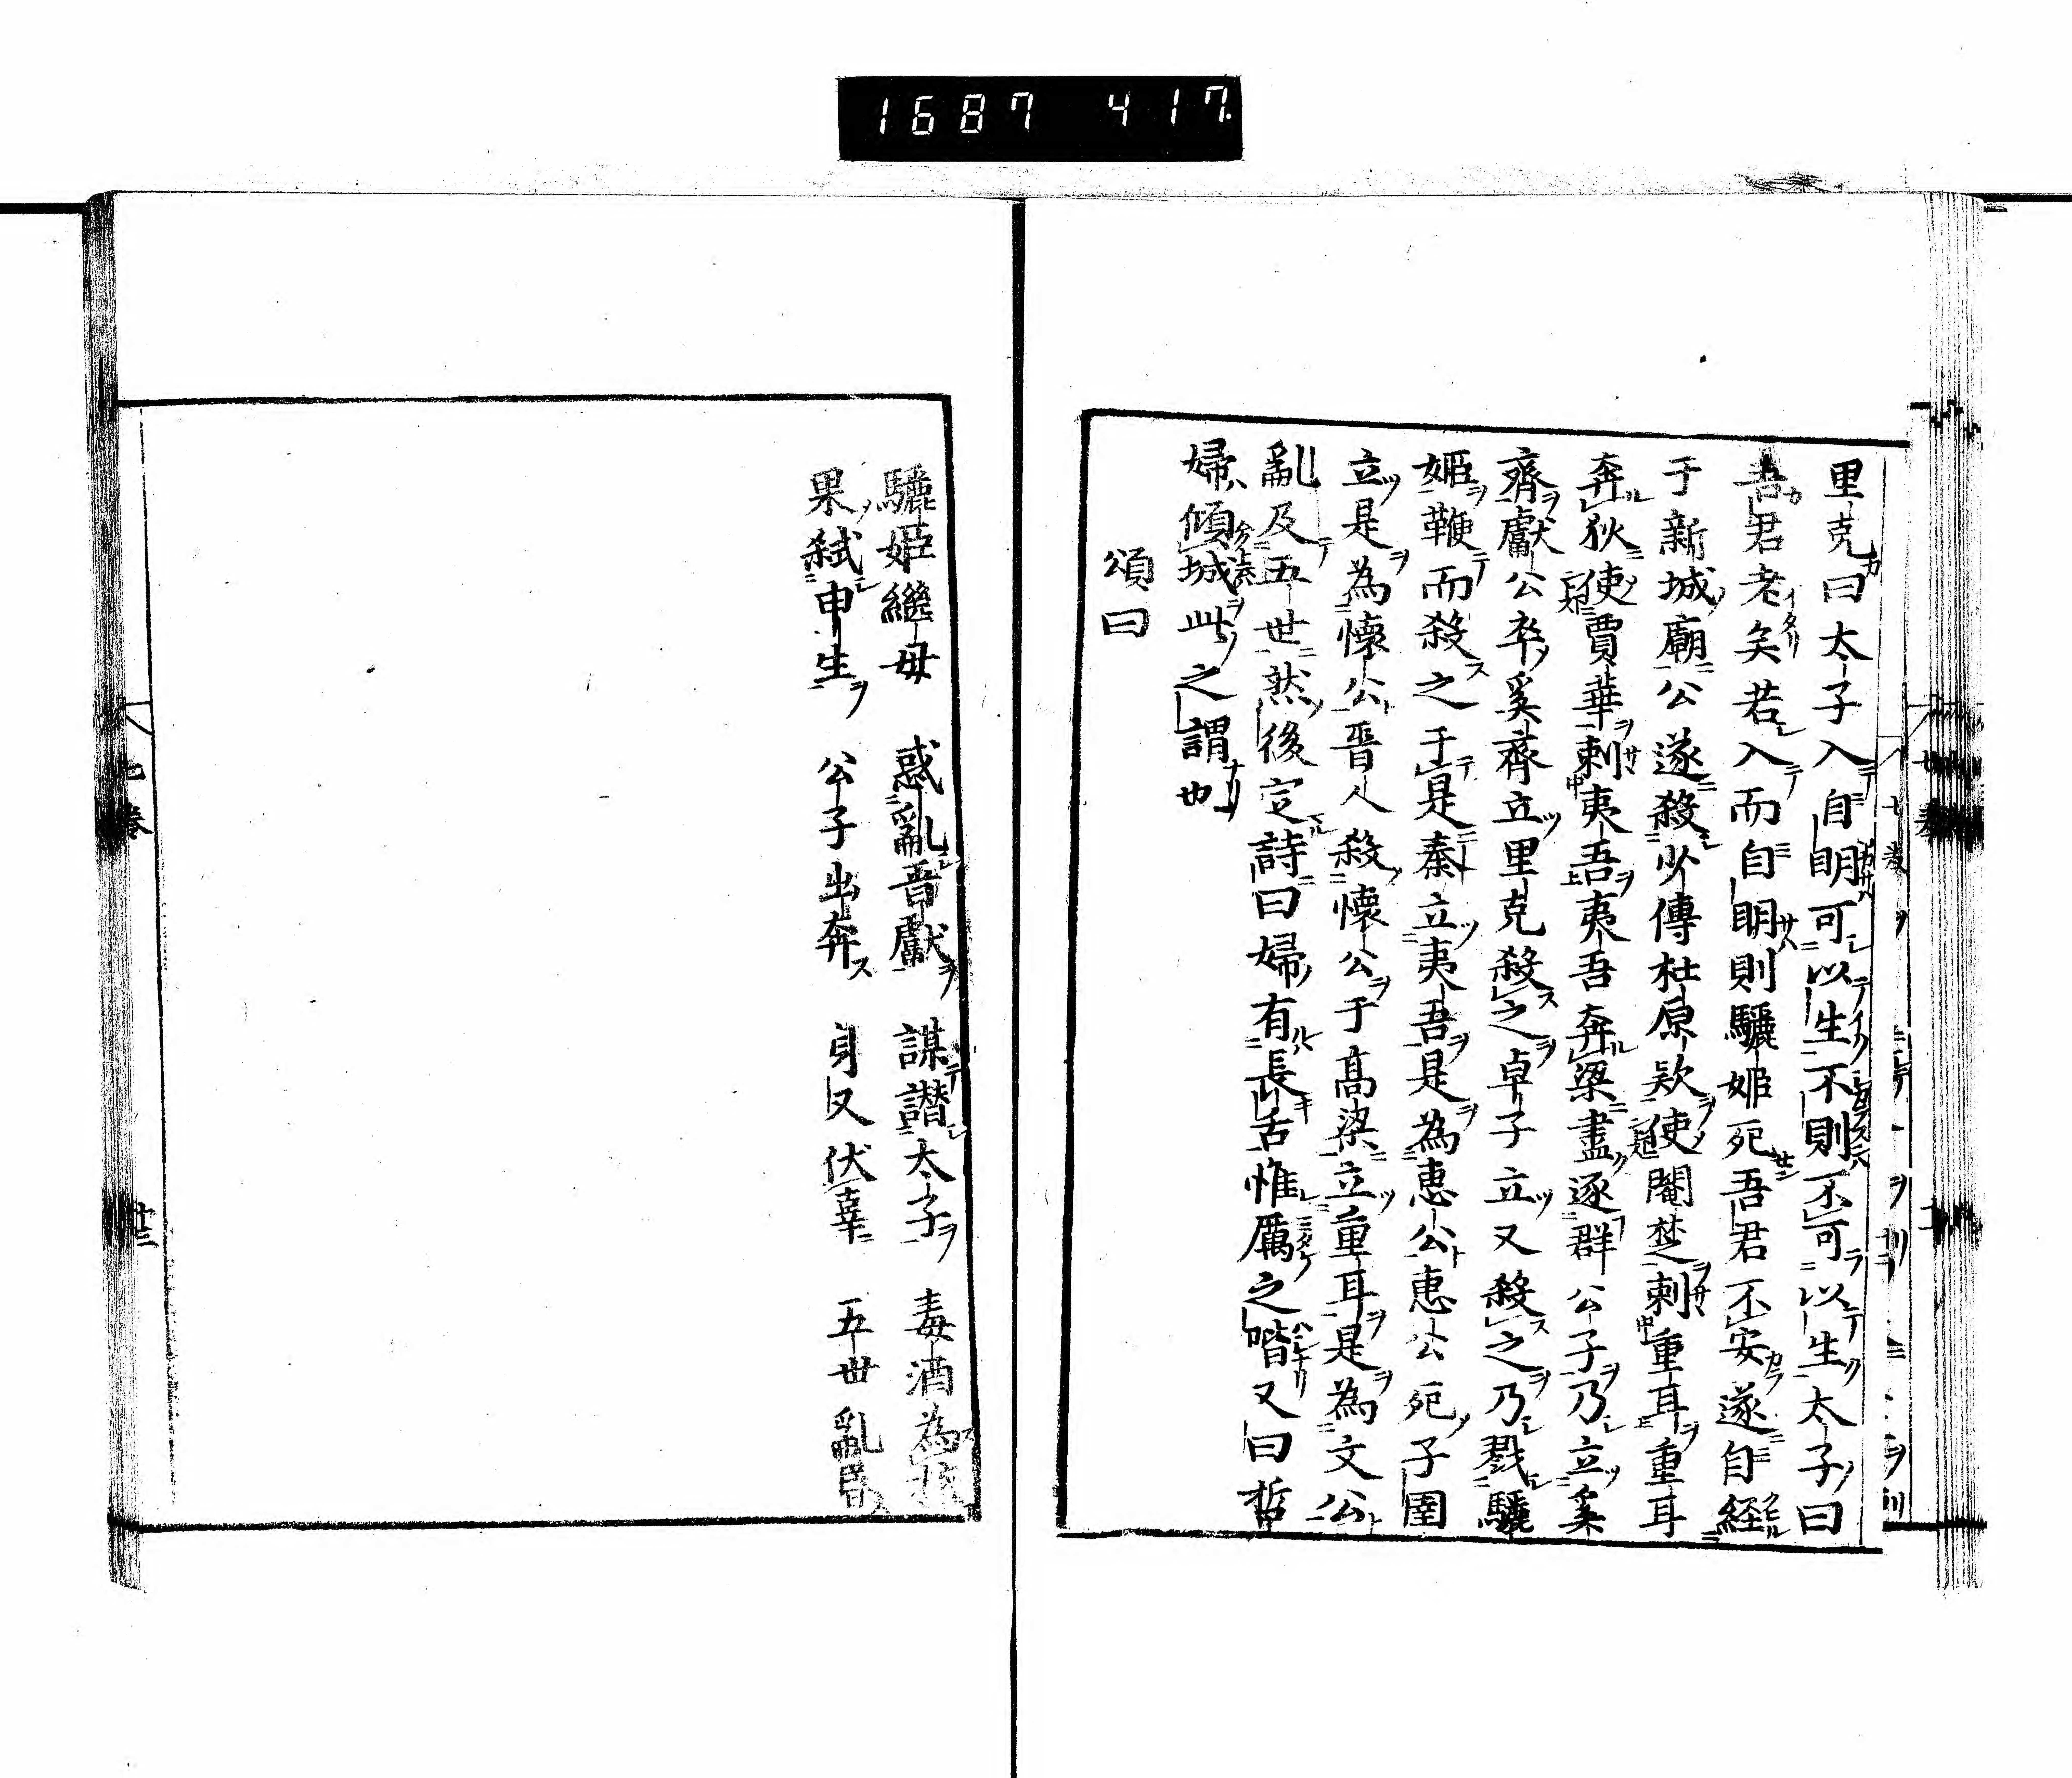 1687 417.
里克曰太子入自明可以生不則不可以生太子曰
吾君老矣若入而自明則驪姬死吾君不安遂自経
于新城廟公遂殺少傅杜原款使閹楚刺重耳重耳
奔狄使賈華刺夷吾夷吾奔梁盡逐群公子乃立奚
齊獻公卒奚齊立里克殺之卓子立又殺之乃戮驪
姬鞭而殺之于是秦立夷吾是為惠公惠公死子圉
立是為懷公晋人殺懷公于高梁立重耳是為文公
亂及五世然後定詩曰婦有長舌惟厲之階又曰哲
婦傾城此之謂也
頌曰
驪姬繼母　惑亂晋獻　謀譖太子　毒酒為權
果弒申生　公子出奔　身又伏辜　五世亂昏
七巻
廿三